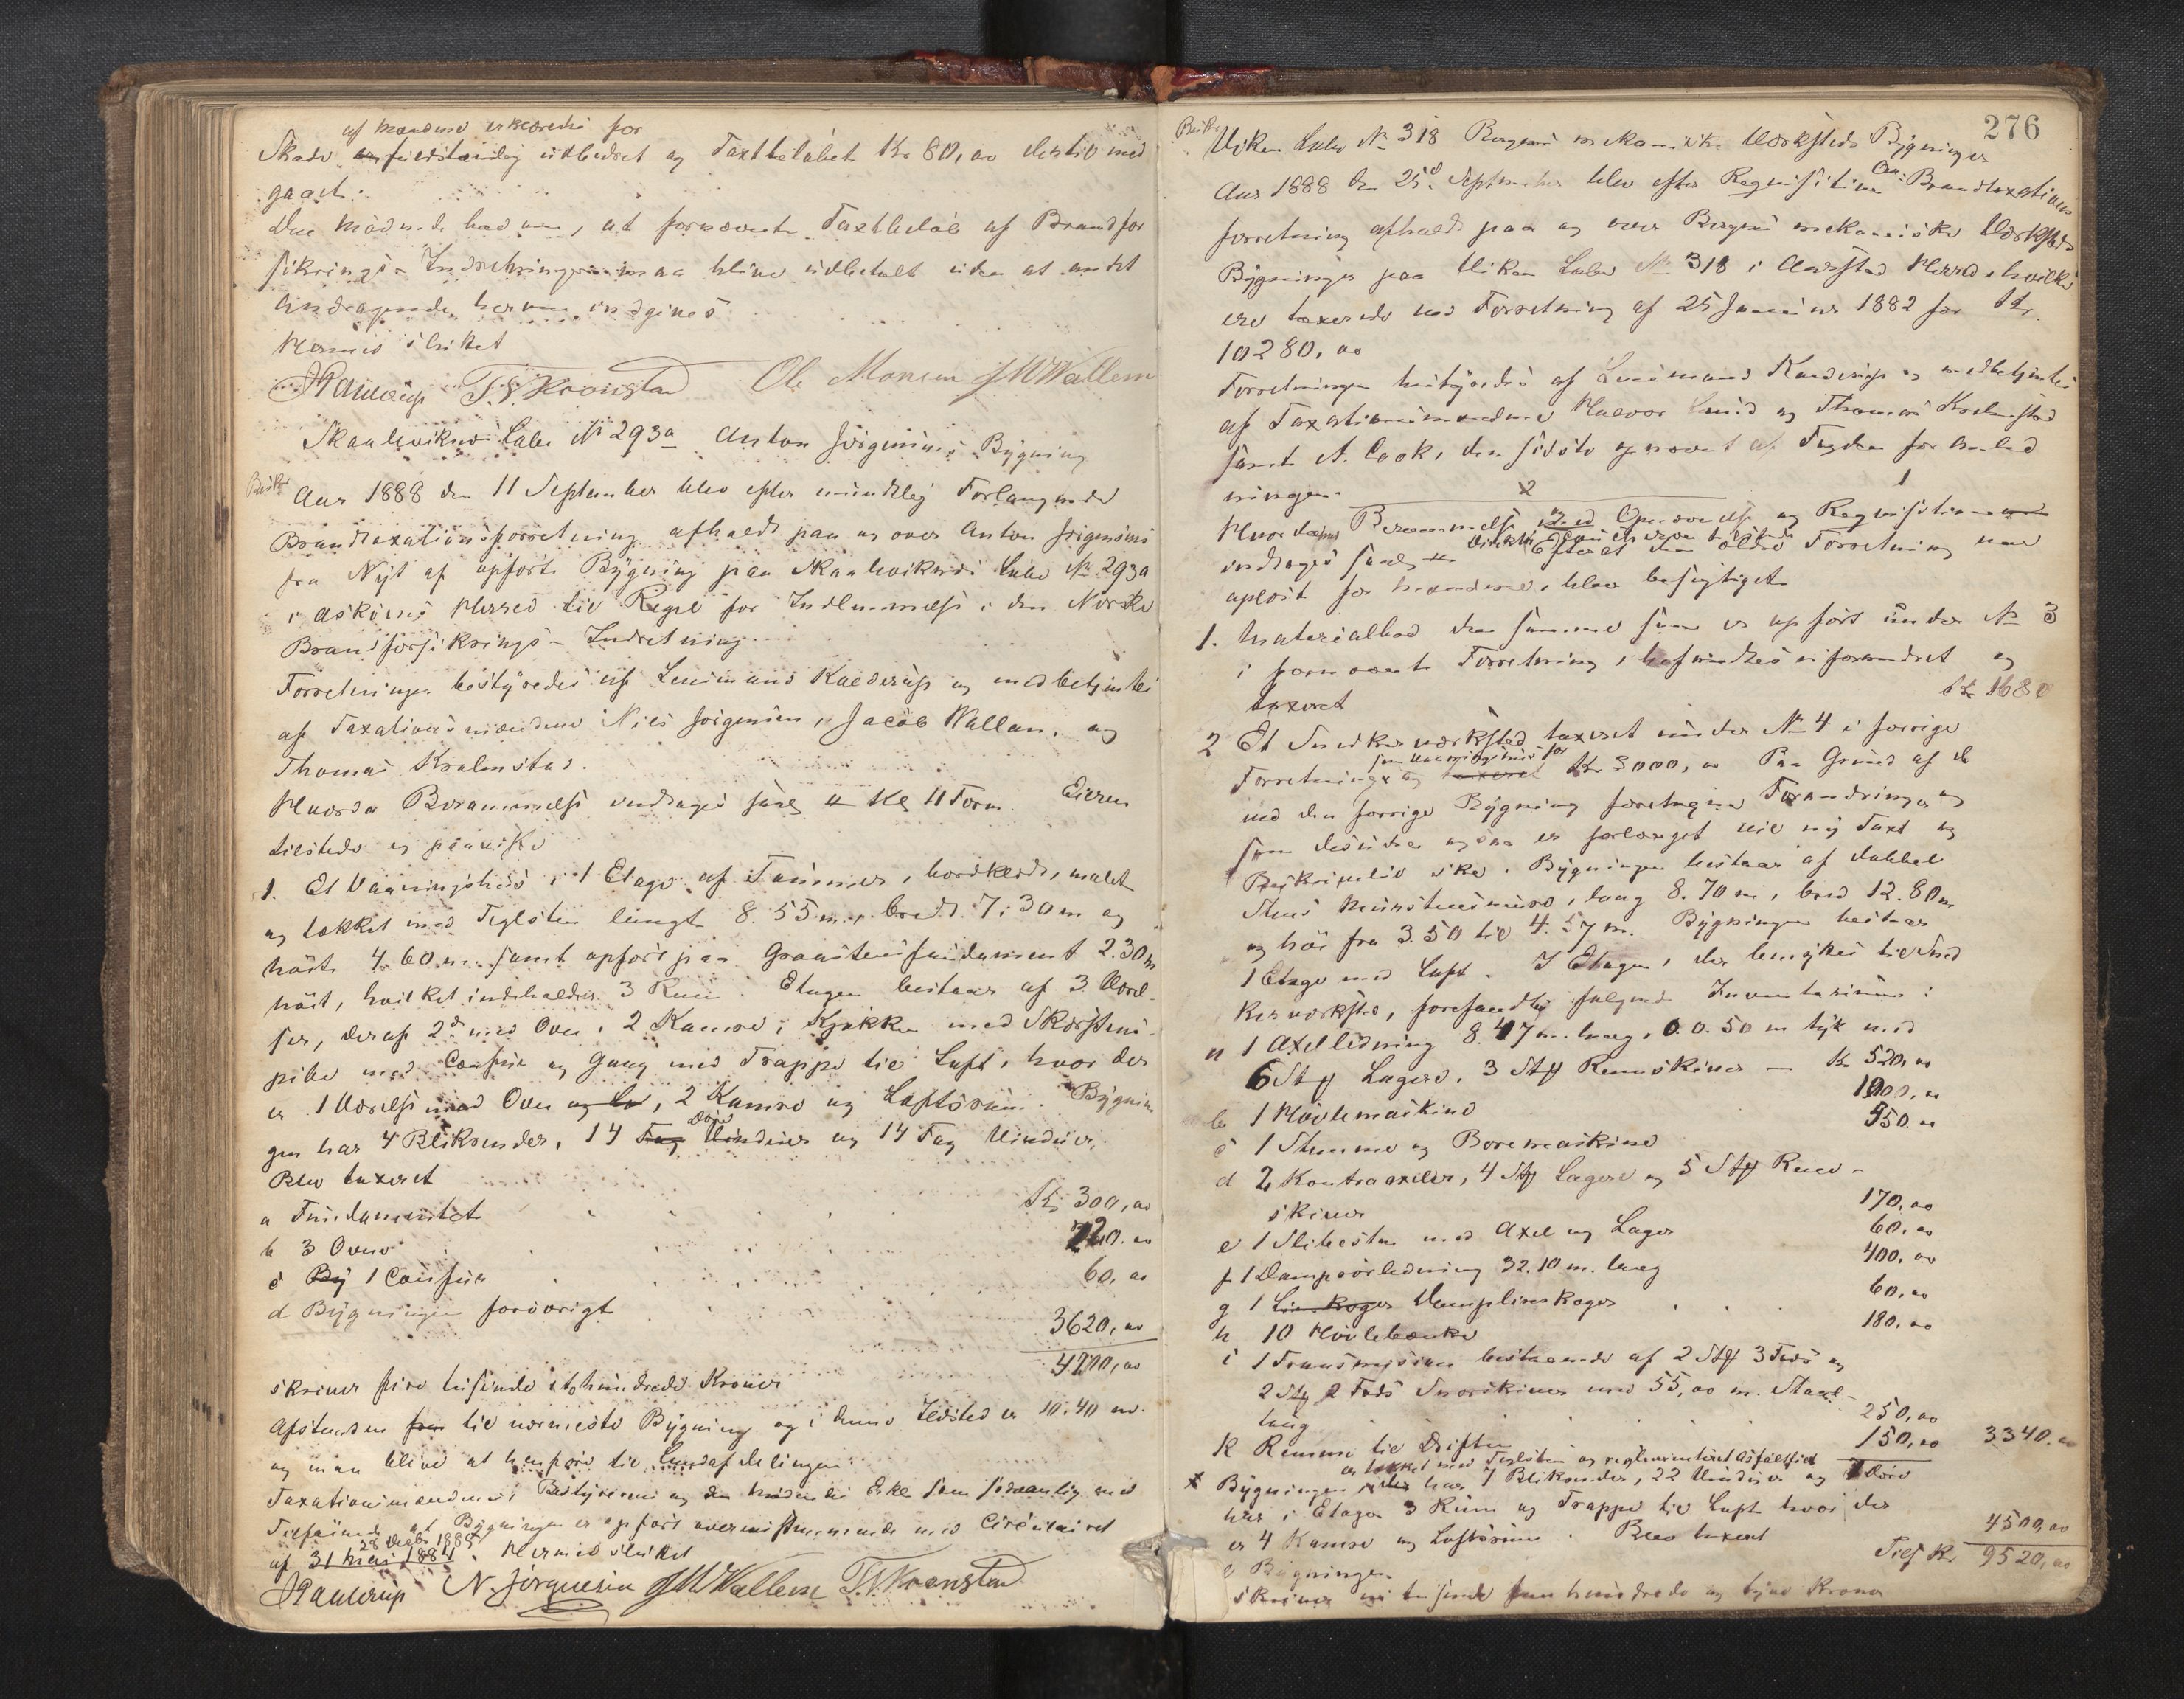 af Mændene erklæredes for
Skade fuldstændig udbedret og Taxtbeløbet Kr 80,00 dertil med
gaaet.
Den mødende bad om, at fornævnte Taxtbeløb af Brandfor
sikrings-Indretningen maa blive udbetalt uden at andet
Andragende herom indgives
Hermed sluttet
T. S. Kronstad Ole Monsen J W Wallem
Skaaleviknes Labe No 293a Anton Jørgensens Bygning
Beskr
Aar 1888 den 11 September blev efter mundtlig Forlangende
Brandtaxationsforretning afholdt paa og over Anton Jørgensens
fra Nyt af opførte Bygning paa Skaaleviknes Labe No 293a
i Askøens Herred til Regel for Indlemmelse i den Norske
Brandforsikrings-Indretning.
Forretningen bestyredes af Lensmand Kaderup og medbetjentes
af Taxationsmændene Nils Jørgensen, Jacob Wallem, og
Thomas Kralmstad.
Hvorda Berammelse vedtages saal. Kl 11 Form. Eieren
tilstede og paaviste
1. Et Vaaningshus i 1 Etage af Tømmer, bordklædt, malet
og tækket med Teglsten langt 8.55 m, bredt 7.30 m og
høit 4.60 m. samt opført paa Graastensfundament 2.30 m
høit, hvilket indeholder 3 Rum. Etagen bestaar af 3 Værel-
ser, deraf 2de med Ovn, 2 Kamre, Kjøkken med Skorstens-
pibe med Comfur og Gang med Trappe til Loft, hvor der
er 1 Værelse med Ovn, 2 Kamre og Loftsrum. Bygnin
gen har 4 Blikrender, 14 Døre og 14 Fag Vinduer.
Blev taxeret
a Fundamentet Kr 300,00
b 3 Ovne 220.00
c 1 Comfur 60,00
d Bygningen forøvrigt 3620,00
4200,00
skriver fire tusinde tohundrede Kroner
Afstanden til nærmeste Bygning og i denne Ildsted er 10.40 m.
og maa blive at henføre til Landafdelingen.
Taxationsmændenes Bestyrerens og Ed som sædvanlig med
Tilføiende at Bygningen er opført overensstemmende med Circulairet
28 Decbr 1885
af 31 Mai 1884. Hermed sluttet
N. Jørgensen J W Wallem T. S. Kronstad
276
Beskr
Viken Labe No 318 Bergens mekaniske Værksteds Bygninger
Aar 1888 den 25d September blev efter Requisition Brandtaxations
forretning afholdt paa og over Bergens mekaniske Værksteds
Bygninger paa Viken Labe No 318 i Aarstad Herred hvilke
ere taxerede ved Forretning af 25 Januar 1882 for Kr.
10280,00
Forretningen bestyredes af Lensmand Kaderup og medbetjentes
af Taxationsmændene Halvor Lund og Thomas Kralmstad
samt A. Cook, den sidste opnævnt af Fogden for Anled
ningen.
Hvordan Berammelse med Opnævnelse og Requisitionen
vedtages saal. Efterat den ældre Forretning var
oplæst for Mændene, blev besigtiget
1. Materialbod den samme som er opført under No 3
i fornævnte Forretning, befandtes uforandret og
taxeret Kr 1680
2 Et Snedkerværksted taxeret under No 4 i forrige
Forretning og Kr 3000,00 Paa Grund af de
ved den forrige Bygning foretagne Forandringer og
som desuden ogsaa er forlænget vil ny Taxt og
Beskrivelse ske. Bygningen bestaar af dobbel
Stens Murstensmure, lang 8.70 m, bred 12.80 m
og høi fra 3.50 til 4.57 m. Bygningen bestaar
1 Etage med Loft. I Etagen, der benyttes til Sned
kerværksted, forefandtes følgende Inventarium:
a 1 Axelledning 8.47 m. lang, 0.50 m tyk med
6 Stk Lagere, 3 Stk Remskiver — Kr 520,00
b 1 Høvlemaskine 1000,00
c 1 Stemme og Boremaskine 550.00
d 2 Kontraaxeler, 4 Stk Lagere og 5 Stk Rem-
skiver 170,00
e 1 Slibesten med Axel og Lager 60,00
f 1 Damprørledning 32.10 m. lang 400,00
g 1 Damplimkoger 60,00
h 10 Høvlebænke 180,00
i 1 Transmission bestaaende af 2 Stk 3 Fods og
2 Stk 2 Fods Snorskiver med 55,00 m. Staal-
taug 250,00
k Remme til Driften 150,00 3340.00
er tækket med Teglsten og reglementeret Asfaltfilt
x Bygningen har 7 Blikrender, 22 Vinduer og Døre
har i Etagen 3 Rum og Trappe til Loft hvor der
er 4 Kamre og Loftsrum. Blev taxeret
Bygningen 4500,00
Tils Kr 9520,00
skriver ni tusinde fem hundrede og tyve Kroner